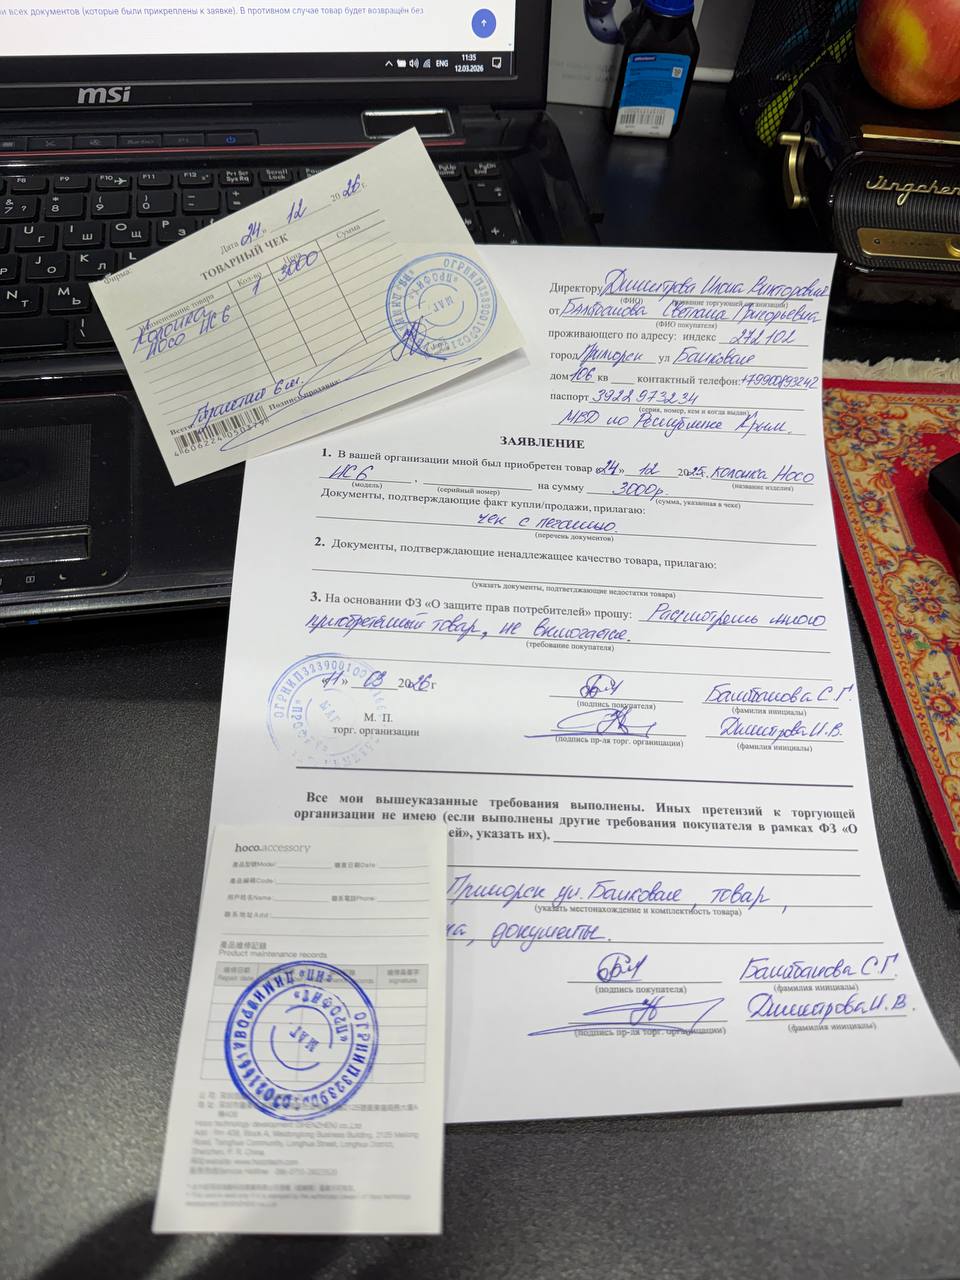 всех документов (которые были прикреплены к заявке). В противном случае товар будет возвращён без
ENG
11:35
12.03.2026
msi
Дата 24 » 12 2026 г.
Фирма:
ТОВАРНЫЙ ЧЕК
Наименование товара Кол-во Цена Сумма
Колонка 1 3000
HOCO HC6
Гарантия 6 м.
Всего: Подпись продавца:
4 606224 050379
Jingchen
Директору Димитрова Илона Викторовна
(ФИО) название торгующей организации)
от Балтбанова Светлана Григорьевна
(ФИО покупателя)
проживающего по адресу: индекс 272102
город Приморск ул Банковая
дом 106 кв контактный телефон:
паспорт 3922 973234
(серия, номер, кем и когда выдан)
МВД по Республике Крым.
ЗАЯВЛЕНИЕ
1. В вашей организации мной был приобретен товар «24» 12 2025г. колонка Hoco
HC6 , на сумму 3000р.
(модель) (серийный номер) (сумма, указанная в чеке) (название изделия)
Документы, подтверждающие факт купли/продажи, прилагаю:
чек с печатью
(перечень документов)
2. Документы, подтверждающие ненадлежащее качество товара, прилагаю:
(указать документы, подтверждающие недостатки товара)
3. На основании ФЗ «О защите прав потребителей» прошу: Расмотреть мною
приобретёный товар, не включается.
(требование покупателя)
«11» 03 2026 г
(подпись покупателя) (фамилия инициалы)
М. П.
торг. организации
Димитрова И.В.
(подпись пр-ля торг. организации) (фамилия инициалы)
Все мои вышеуказанные требования выполнены. Иных претензий к торгующей
организации не имею (если выполнены другие требования покупателя в рамках ФЗ «О
ей», указать их).
Приморск ул. Банковая, товар,
(указать местонахождение и комплектность товара)
документы.
(подпись покупателя) (фамилия инициалы)
Димитрова И.В.
(подпись пр-ля торг. организации) (фамилия инициалы)
hoco.accessory
產品型號Model: 購買日期Date:
產品編碼Code:
用戶姓名Name: 聯系電話Phone:
聯系地址Add:
產品維修記錄
Product maintenance records
維修日期 維修員簽字
Repair date signature
"ПРОФИТ"
МАГ
Hoco technology development (SHENZHEN) co.,Ltd